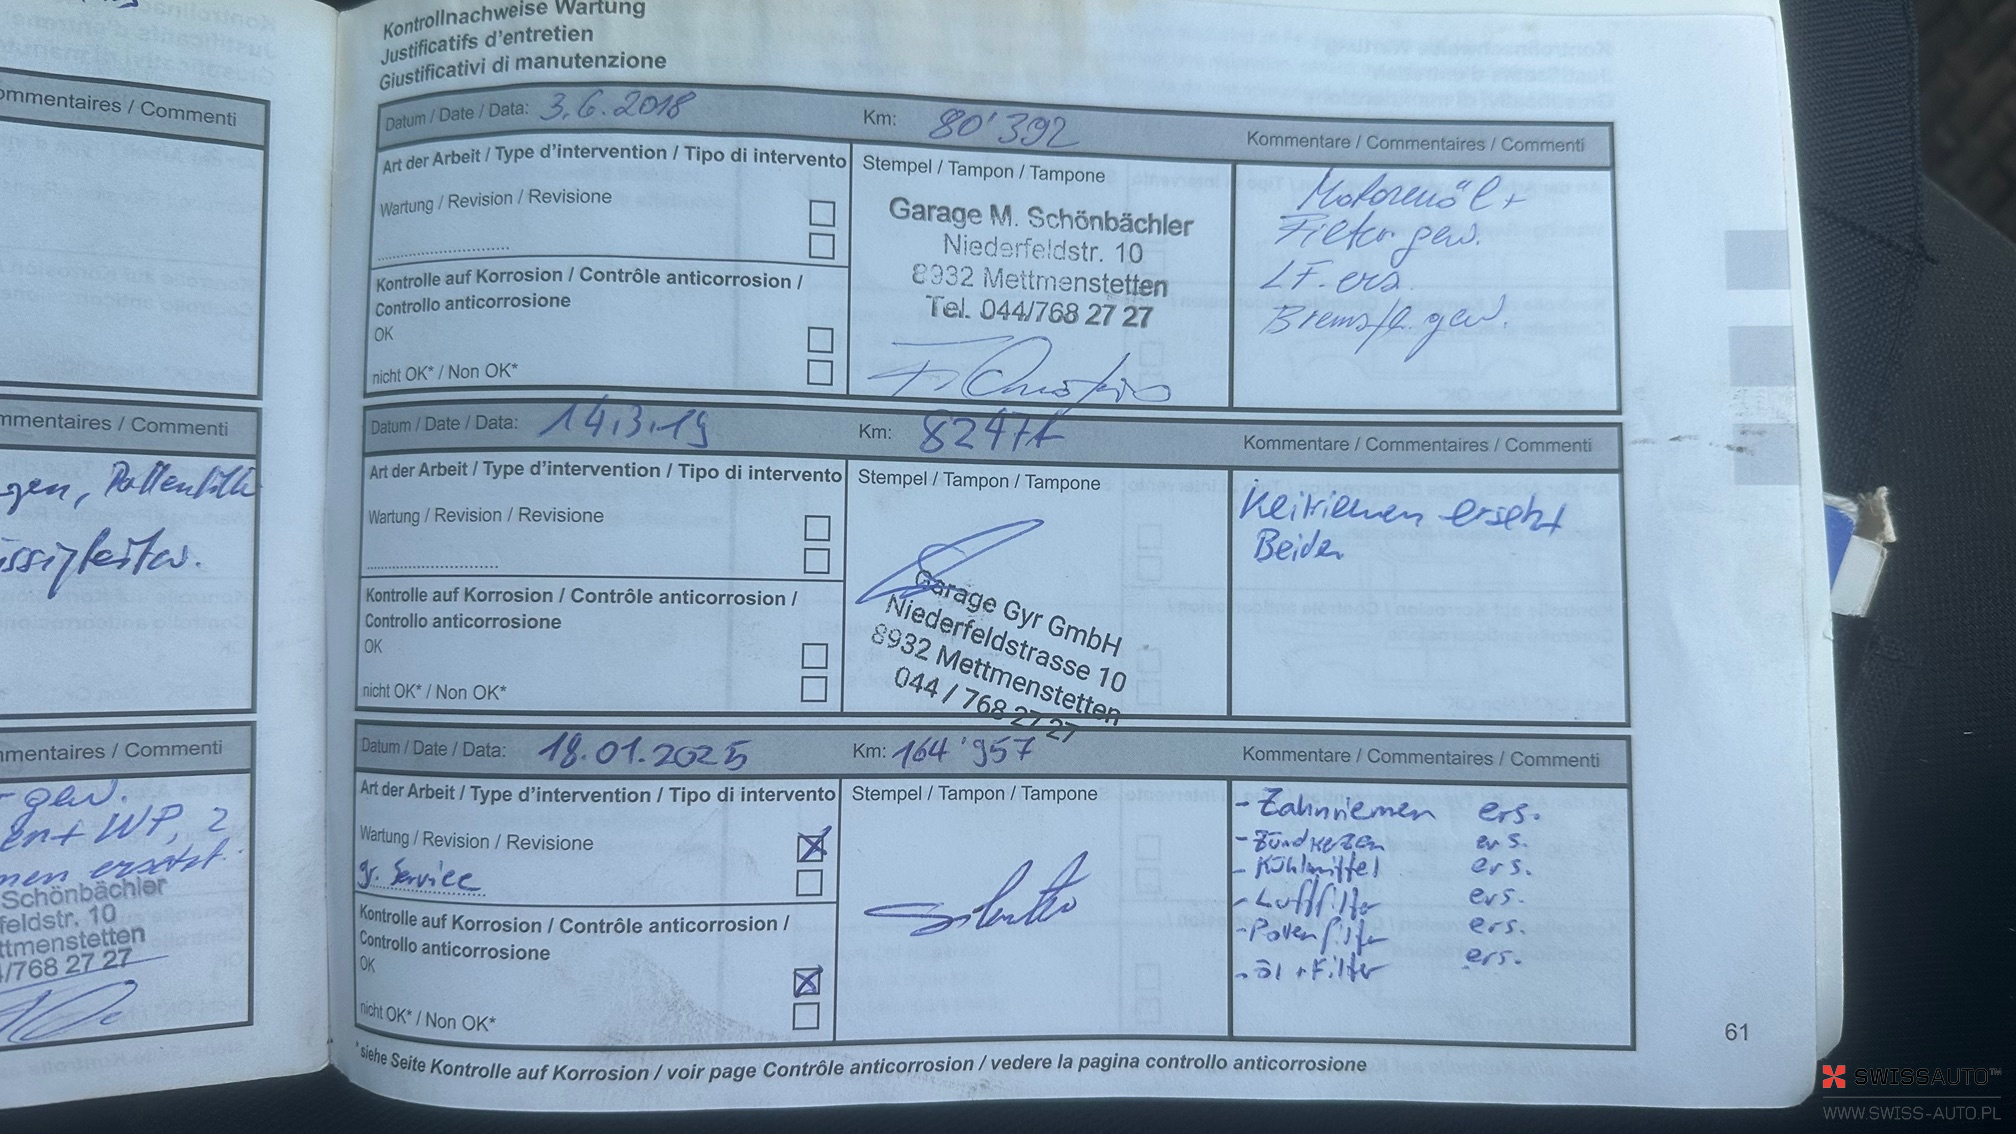 ommentaires / Commenti
mmentaires / Commenti
gen, Pollenfilte
ssigkeitw.
mmentaires / Commenti
gew.
ent WP, 2
men ersetzt.
Schönbächler
feldstr. 10
ttmenstetten
/768 27 27
Kontrollnachweise Wartung
Justificatifs d'entretien
Giustificativi di manutenzione
Datum / Date / Data: 3.6.2018 Km: 80'392 Kommentare / Commentaires / Commenti
Art der Arbeit / Type d'intervention / Tipo di intervento
Wartung / Revision / Revisione
Kontrolle auf Korrosion / Contrôle anticorrosion /
Controllo anticorrosione
OK
nicht OK* / Non OK*
Stempel / Tampon / Tampone
Garage M. Schönbächler
Niederfeldstr. 10
8932 Mettmenstetten
Tel. 044/768 27 27
Motorenöl +
Filter gew.
LF. ers.
Bremsfl. gew.
Datum / Date / Data: 14.3.19 Km: Kommentare / Commentaires / Commenti
Art der Arbeit / Type d'intervention / Tipo di intervento
Wartung / Revision / Revisione
Kontrolle auf Korrosion / Contrôle anticorrosion /
Controllo anticorrosione
OK
nicht OK* / Non OK*
Stempel / Tampon / Tampone
Garage Gyr GmbH
Niederfeldstrasse 10
8932 Mettmenstetten
044 / 768 27 27
Keilriemen ersetzt
Beide
Datum / Date / Data: 18.01.2025 Km: 164'957 Kommentare / Commentaires / Commenti
Art der Arbeit / Type d'intervention / Tipo di intervento
Wartung / Revision / Revisione
gr. Service
Kontrolle auf Korrosion / Contrôle anticorrosion /
Controllo anticorrosione
OK
nicht OK* / Non OK*
Stempel / Tampon / Tampone
- Zahnriemen ers.
- Zündkerzen ers.
- Kühlmittel ers.
- Luftfilter ers.
- Polenfilter ers.
- Öl + Filter ers.
*siehe Seite Kontrolle auf Korrosion / voir page Contrôle anticorrosion / vedere la pagina controllo anticorrosione
61
SWISSAUTO™
WWW.SWISS-AUTO.PL